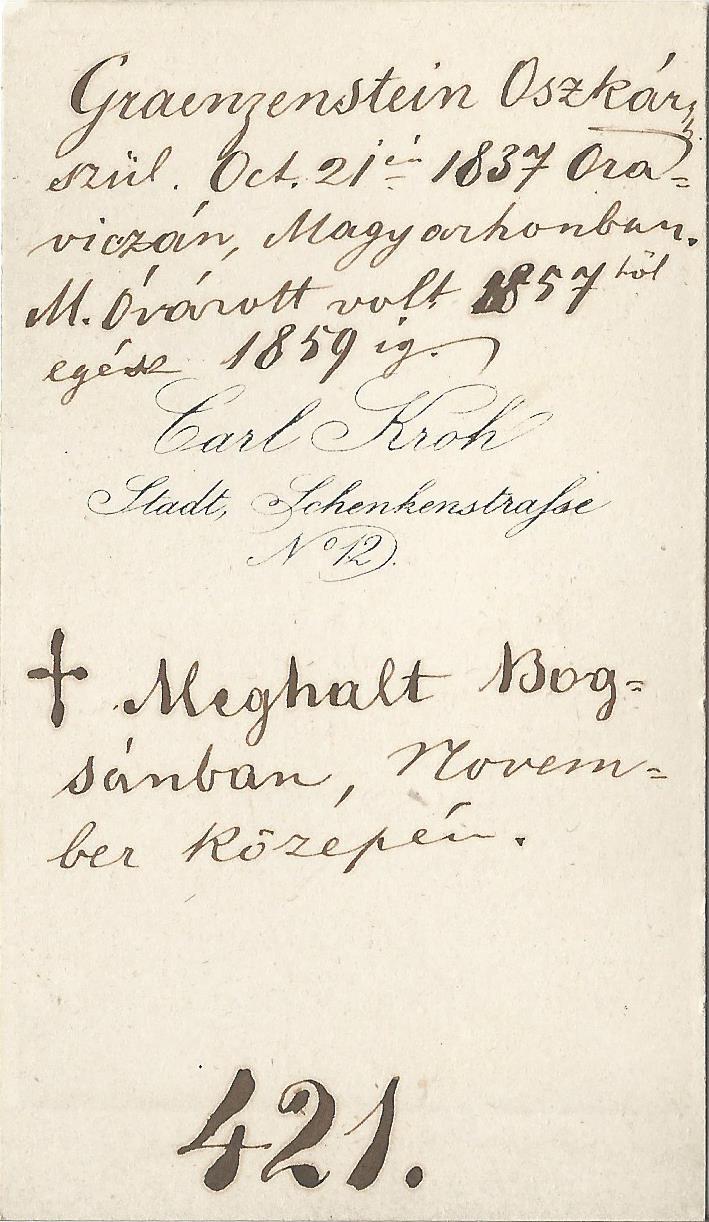 Graenzenstein Oszkár,
szül. Oct. 21 én 1837 Ora=
viczán, Magyarhonban.
M. Óvárott volt 1857 től
egész 1859 ig.
Carl Kroh
Stadt, Schenkenstraſse
No 12.
† Meghalt Bog=
sánban, Novem=
ber közepén.
421.